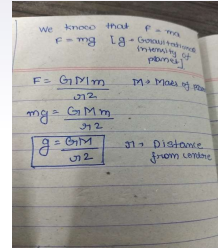 We know that F = ma
F = mg [g → Gravitational
intensity of
planet]
F = GMm / r2 M → Mass of
mg = GMm / r2
g = GM / r2 r → Distance
from centre